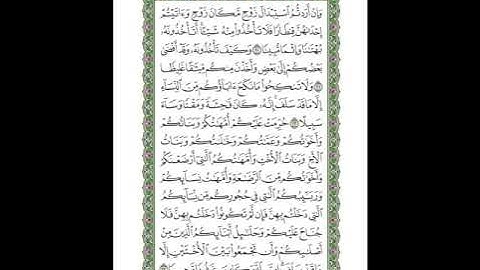 وَإِنْ أَرَدتُّمُ ٱسْتِبْدَالَ زَوْجٍ مَّكَانَ زَوْجٍ وَءَاتَيْتُمْ
إِحْدَىٰهُنَّ قِنطَارًا فَلَا تَأْخُذُوا۟ مِنْهُ شَيْـًٔا أَتَأْخُذُونَهُۥ
بُهْتَـٰنًا وَإِثْمًا مُّبِينًا ۝٢٠ وَكَيْفَ تَأْخُذُونَهُۥ وَقَدْ أَفْضَىٰ
بَعْضُكُمْ إِلَىٰ بَعْضٍ وَأَخَذْنَ مِنكُم مِّيثَـٰقًا غَلِيظًا
۝٢١ وَلَا تَنكِحُوا۟ مَا نَكَحَ ءَابَآؤُكُم مِّنَ ٱلنِّسَآءِ
إِلَّا مَا قَدْ سَلَفَ إِنَّهُۥ كَانَ فَـٰحِشَةً وَمَقْتًا وَسَآءَ
سَبِيلًا ۝٢٢ حُرِّمَتْ عَلَيْكُمْ أُمَّهَـٰتُكُمْ وَبَنَاتُكُمْ
وَأَخَوَٰتُكُمْ وَعَمَّـٰتُكُمْ وَخَـٰلَـٰتُكُمْ وَبَنَاتُ
ٱلْأَخِ وَبَنَاتُ ٱلْأُخْتِ وَأُمَّهَـٰتُكُمُ ٱلَّـٰتِىٓ أَرْضَعْنَكُمْ
وَأَخَوَٰتُكُم مِّنَ ٱلرَّضَـٰعَةِ وَأُمَّهَـٰتُ نِسَآئِكُمْ
وَرَبَـٰٓئِبُكُمُ ٱلَّـٰتِى فِى حُجُورِكُم مِّن نِّسَآئِكُمُ
ٱلَّـٰتِى دَخَلْتُم بِهِنَّ فَإِن لَّمْ تَكُونُوا۟ دَخَلْتُم بِهِنَّ فَلَا
جُنَاحَ عَلَيْكُمْ وَحَلَـٰٓئِلُ أَبْنَآئِكُمُ ٱلَّذِينَ مِنْ
أَصْلَـٰبِكُمْ وَأَن تَجْمَعُوا۟ بَيْنَ ٱلْأُخْتَيْنِ إِلَّا